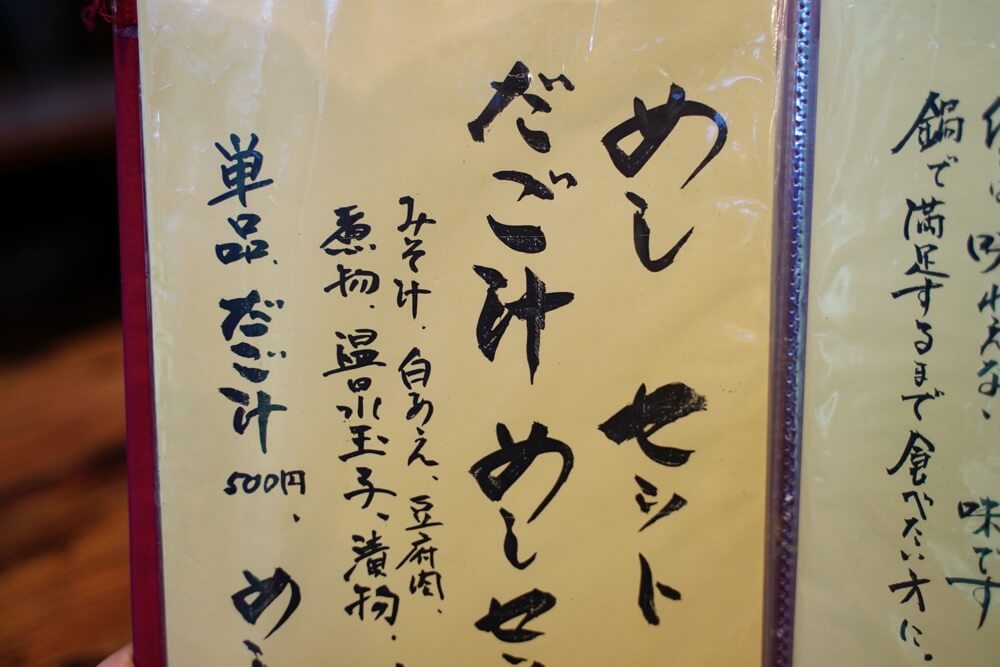 味わえない 味です
鍋で満足するまで食べたい方に。
めし セット
だご汁 めしセッ
みそ汁、白あえ、豆腐肉、
煮物、温泉玉子、漬物、
単品、だご汁 500円、 めし